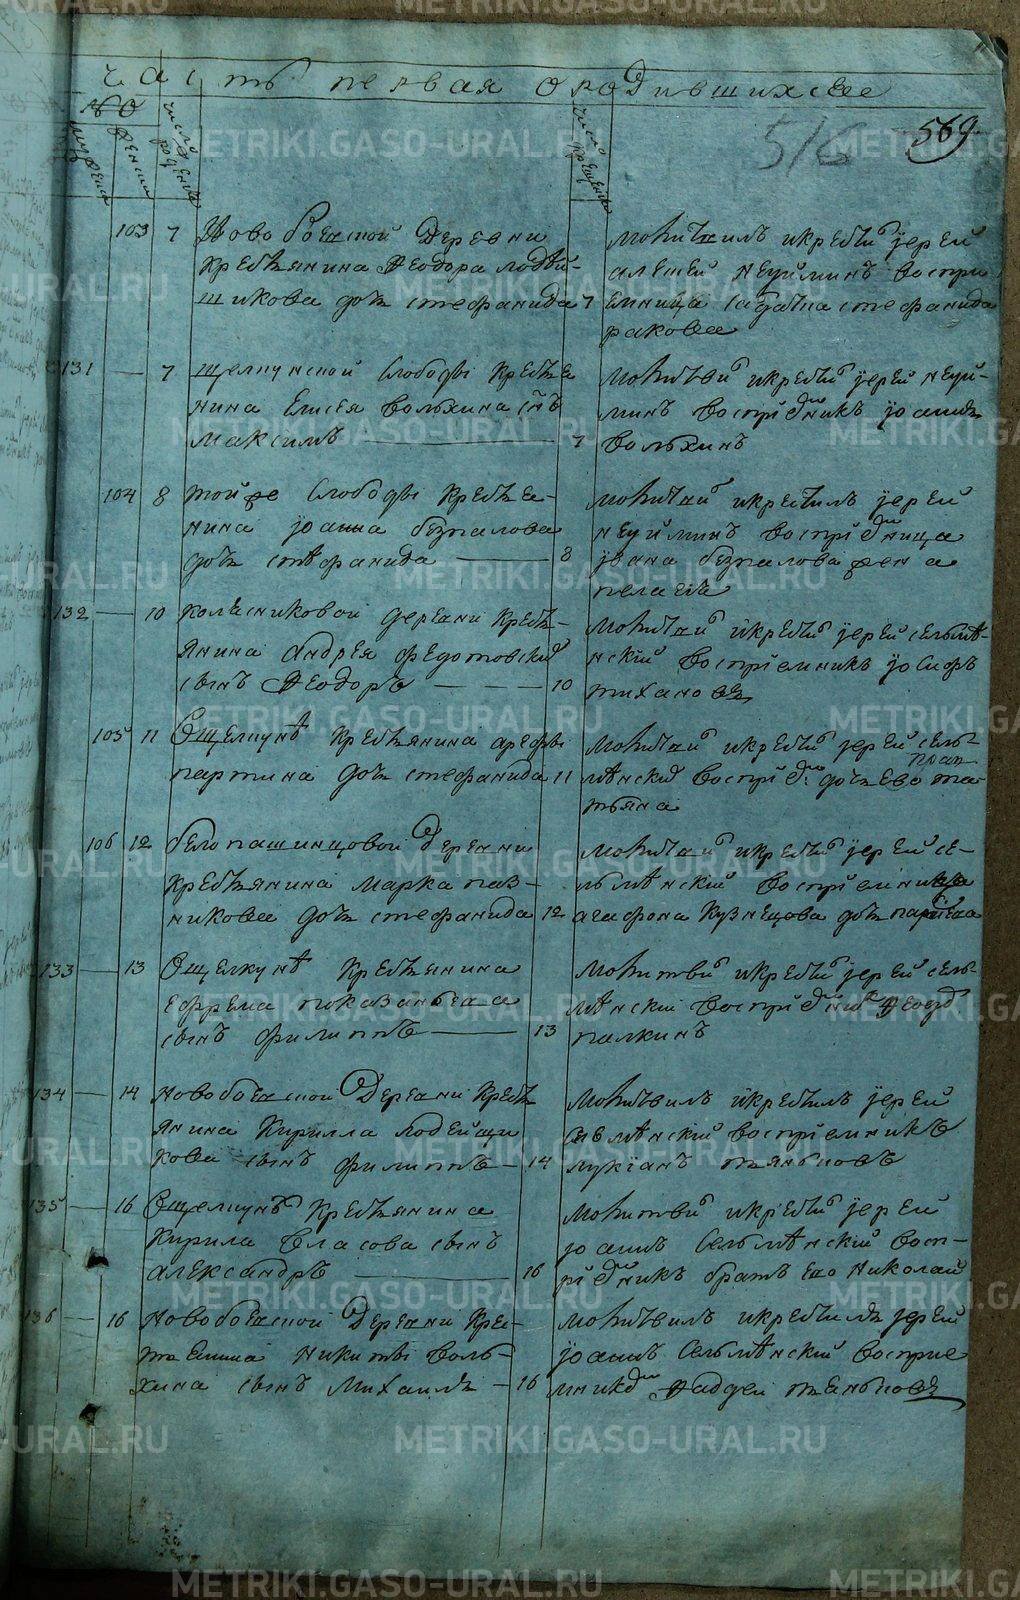 часть первая о родившихся
№
мужеска
женска
число рожденія
число крещенія
516
569
103 7 Ново боевской Деревни
крестьянина Ѳеодора лодей-
щикова дочь стефанида 7
молитвилъ икрестилъ іерей
алеѯей неуйминъ воспри
емница стефанида
ракова
131 — 7 щелкунской слободы крестья
нина Елисея вольхина сынъ
максимъ 7
молитвилъ икрестилъ іерей неуй-
минъ воспріемникъ іоаннъ
вольхинъ
104 8 той же слободы крестья-
нина іоанна безпалова
дочь стефанида 8
молитвилъ икрестилъ іерей
неуйминъ воспріемница
ивана безпалова жена
пелагея
132 — 10 колясниковой деревни кресть-
янина андрея федотовских
сынъ Ѳеодоръ 10
молитвилъ икрестилъ іерей сельмен-
нскій воспріемникъ іосифъ
тихановъ
105 11 Сщелкунъ крестьянина арефы
партина дочь стефанида 11
молитвилъ икрестилъ іерей сель-
менскій воспріем: дочь ево та
тьяна
106 12 белопашинцовой Деревни
крестьянина марка паз-
никова дочь стефанида 12
молитвилъ икрестилъ іерей се-
льменскій воспріемница
агафона кузнецова дочь
133 — 13 Сщелкунъ крестьянина
ефрема показаньева
сынъ филиппъ 13
молитвилъ икрестилъ іерей сель-
менскій воспріемникъ Ѳеодоръ
палкинъ
134 — 14 новобоевской Деревни кресть
янина Кирилла лодейщи
кова сынъ филиппъ — 14
молитвилъ икрестилъ іерей
сельменскій воспріемникъ
лукіанъ тяньковъ
135 — 16 Сщелкунъ крестьянина
Кирила власова сынъ
александръ 16
молитвилъ икрестилъ іерей
іоаннъ сельменскій восп-
ріемникъ братъ ево николай
136 — 16 Новобоевской Деревни кре-
стьянина никиты воль-
хина сынъ михаилъ — 16
молитвилъ икрестилъ іерей
іоаннъ сельменскій воспріе
мникъ Ѳаддей теньковъ
METRIKI.GASO-URAL.RU